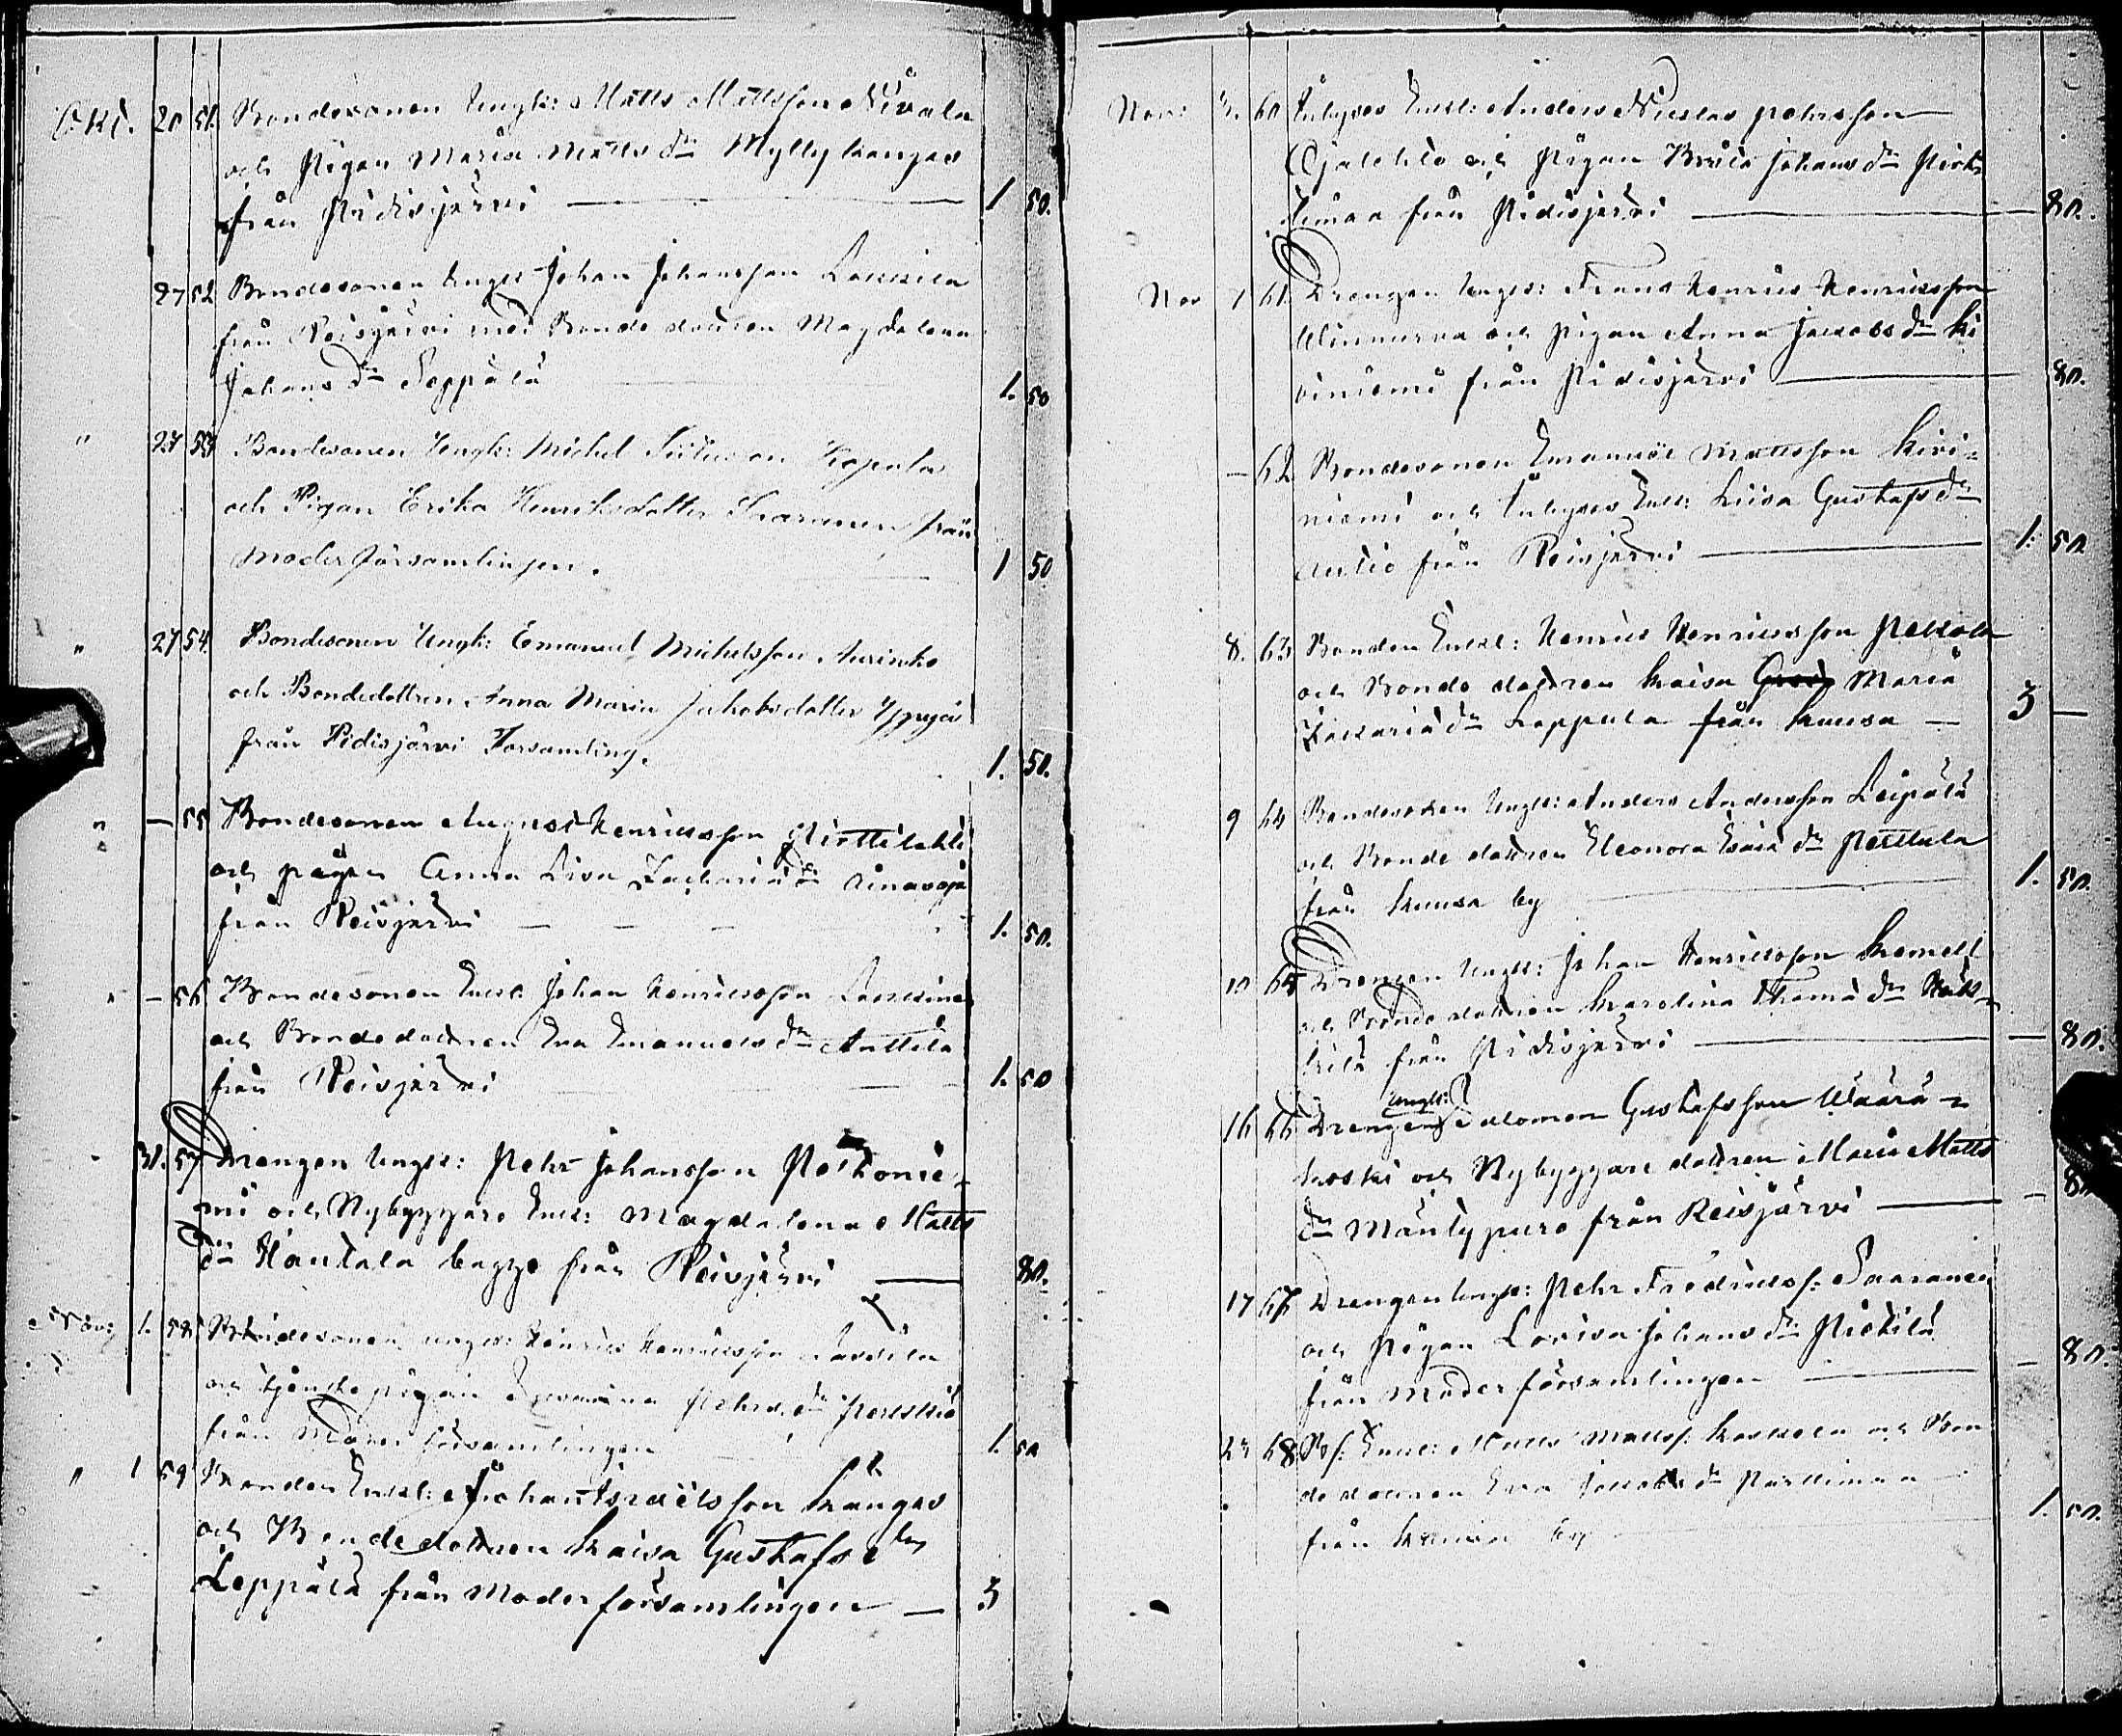 Okt. 20 51. Bondesonen Ungk: Matts Mattsson Nivala
och Pigan Maria Matts dr Myllykangas
från Pidisjärvi — 1 50.
27 52 Bondesonen Ungk: Johan Johansson Laukila
från Reisjärvi med Bonde dottren Magdalena
Johans dr Seppälä 1. 50
" 27 53 Bondesonen Ungk: Michel Kopala
och Pigan Erika Henriksdotter Saaranen från
Moderförsamlingen. 1 50
" 27 54. Bondesonen Ungk: Emanuel Michelsson Aurinko
och Bondedottren Anna Maria Jakobsdotter Yppyä
från Pidisjärvi Församling. 1. 50.
" — 55 Bondesonen August Henriksson Pirttilahti
och pigan Anna Lisa Zacharia dr Ainasoja
från Reisjärvi — — — 1. 50.
" — 56 Bondesonen Enkl: Johan Henriksson
och Bondedottren Eva Emanuels dr Anttila
från Reisjärvi 1. 50
31. 57 Drengen Ungk: Pehr Johansson Petkonie-
mi och Nybyggare Enk: Magdalena Matts
dr Hantala begge från Reisjärvi — 80.
Nov: 1. 58 Bondesonen ungk: Henrik Henriksson
och tjenste pigan Susanna Pehrs dr
från Moderförsamlingen 1. 50
" 1 59 Bonden Enkl: Johan Israelsson Kangas
och Bondedottren Kaisa Gustafs dr
Leppälä från Moderförsamlingen — 3
Nov: 3. 60 Inhyses Enkl: Anders Niklas Pehrsson
Ojalehto och Pigan Brita Johans dr Pirt-
timaa från Pidisjärvi — 80.
Nov 7 61. Drengen Ungk: Frans Henrik Henriksson
Winnurva och pigan Anna Jakobs dr Ki
viniemi från Pidisjärvi — 80.
— 62 Bondesonen Emanuel Mattsson Kivi-
niemi och Inhyses Enk: Liisa Gustafs dr
Autio från Reisjärvi — 1. 50
8. 63 Bonden Enkl: Henrik Henriksson Pekkala
och Bonde dottren Kaisa Maria
Zakaria dr Leppala från Kuusa — 3 —
9 64 Bondesonen Ungk: Anders Andersson Leipälä
och Bonde dottren Eleonora Esaia dr Perttula
från Kuusa by 1. 50.
10 65 Drengen Ungk: Johan Henriksson Kemell
och Bonde dottren Karolina Thoma dr
från Pidisjärvi — 80.
ungk:
16 66 Drengen Salomon Gustafsson Wäärä-
koski och Nybyggare dottren Maria Matts
dr Mäntypuro från Reisjärvi — 80
17 67 Drengen ungk: Pehr Fredrikss: Saaranen
och Pigan Lovisa Johans dr Pietilä
från Moderförsamlingen — 80.
23 68 Bs: Enkl: Matts Matts: Koskela och Bon
de dottren Eva Jakobs dr Parttimaa
från by 1. 50.